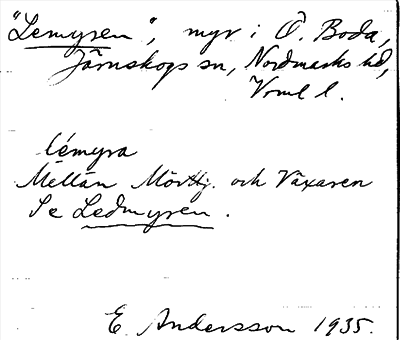 "Lemyren", myr i Ö. Boda,
Järnskogs sn, Nordmarks hd,
Vrml l.
lémyra
Mellan och Växaren
Se Ledmyren.
E. Andersson 1935.